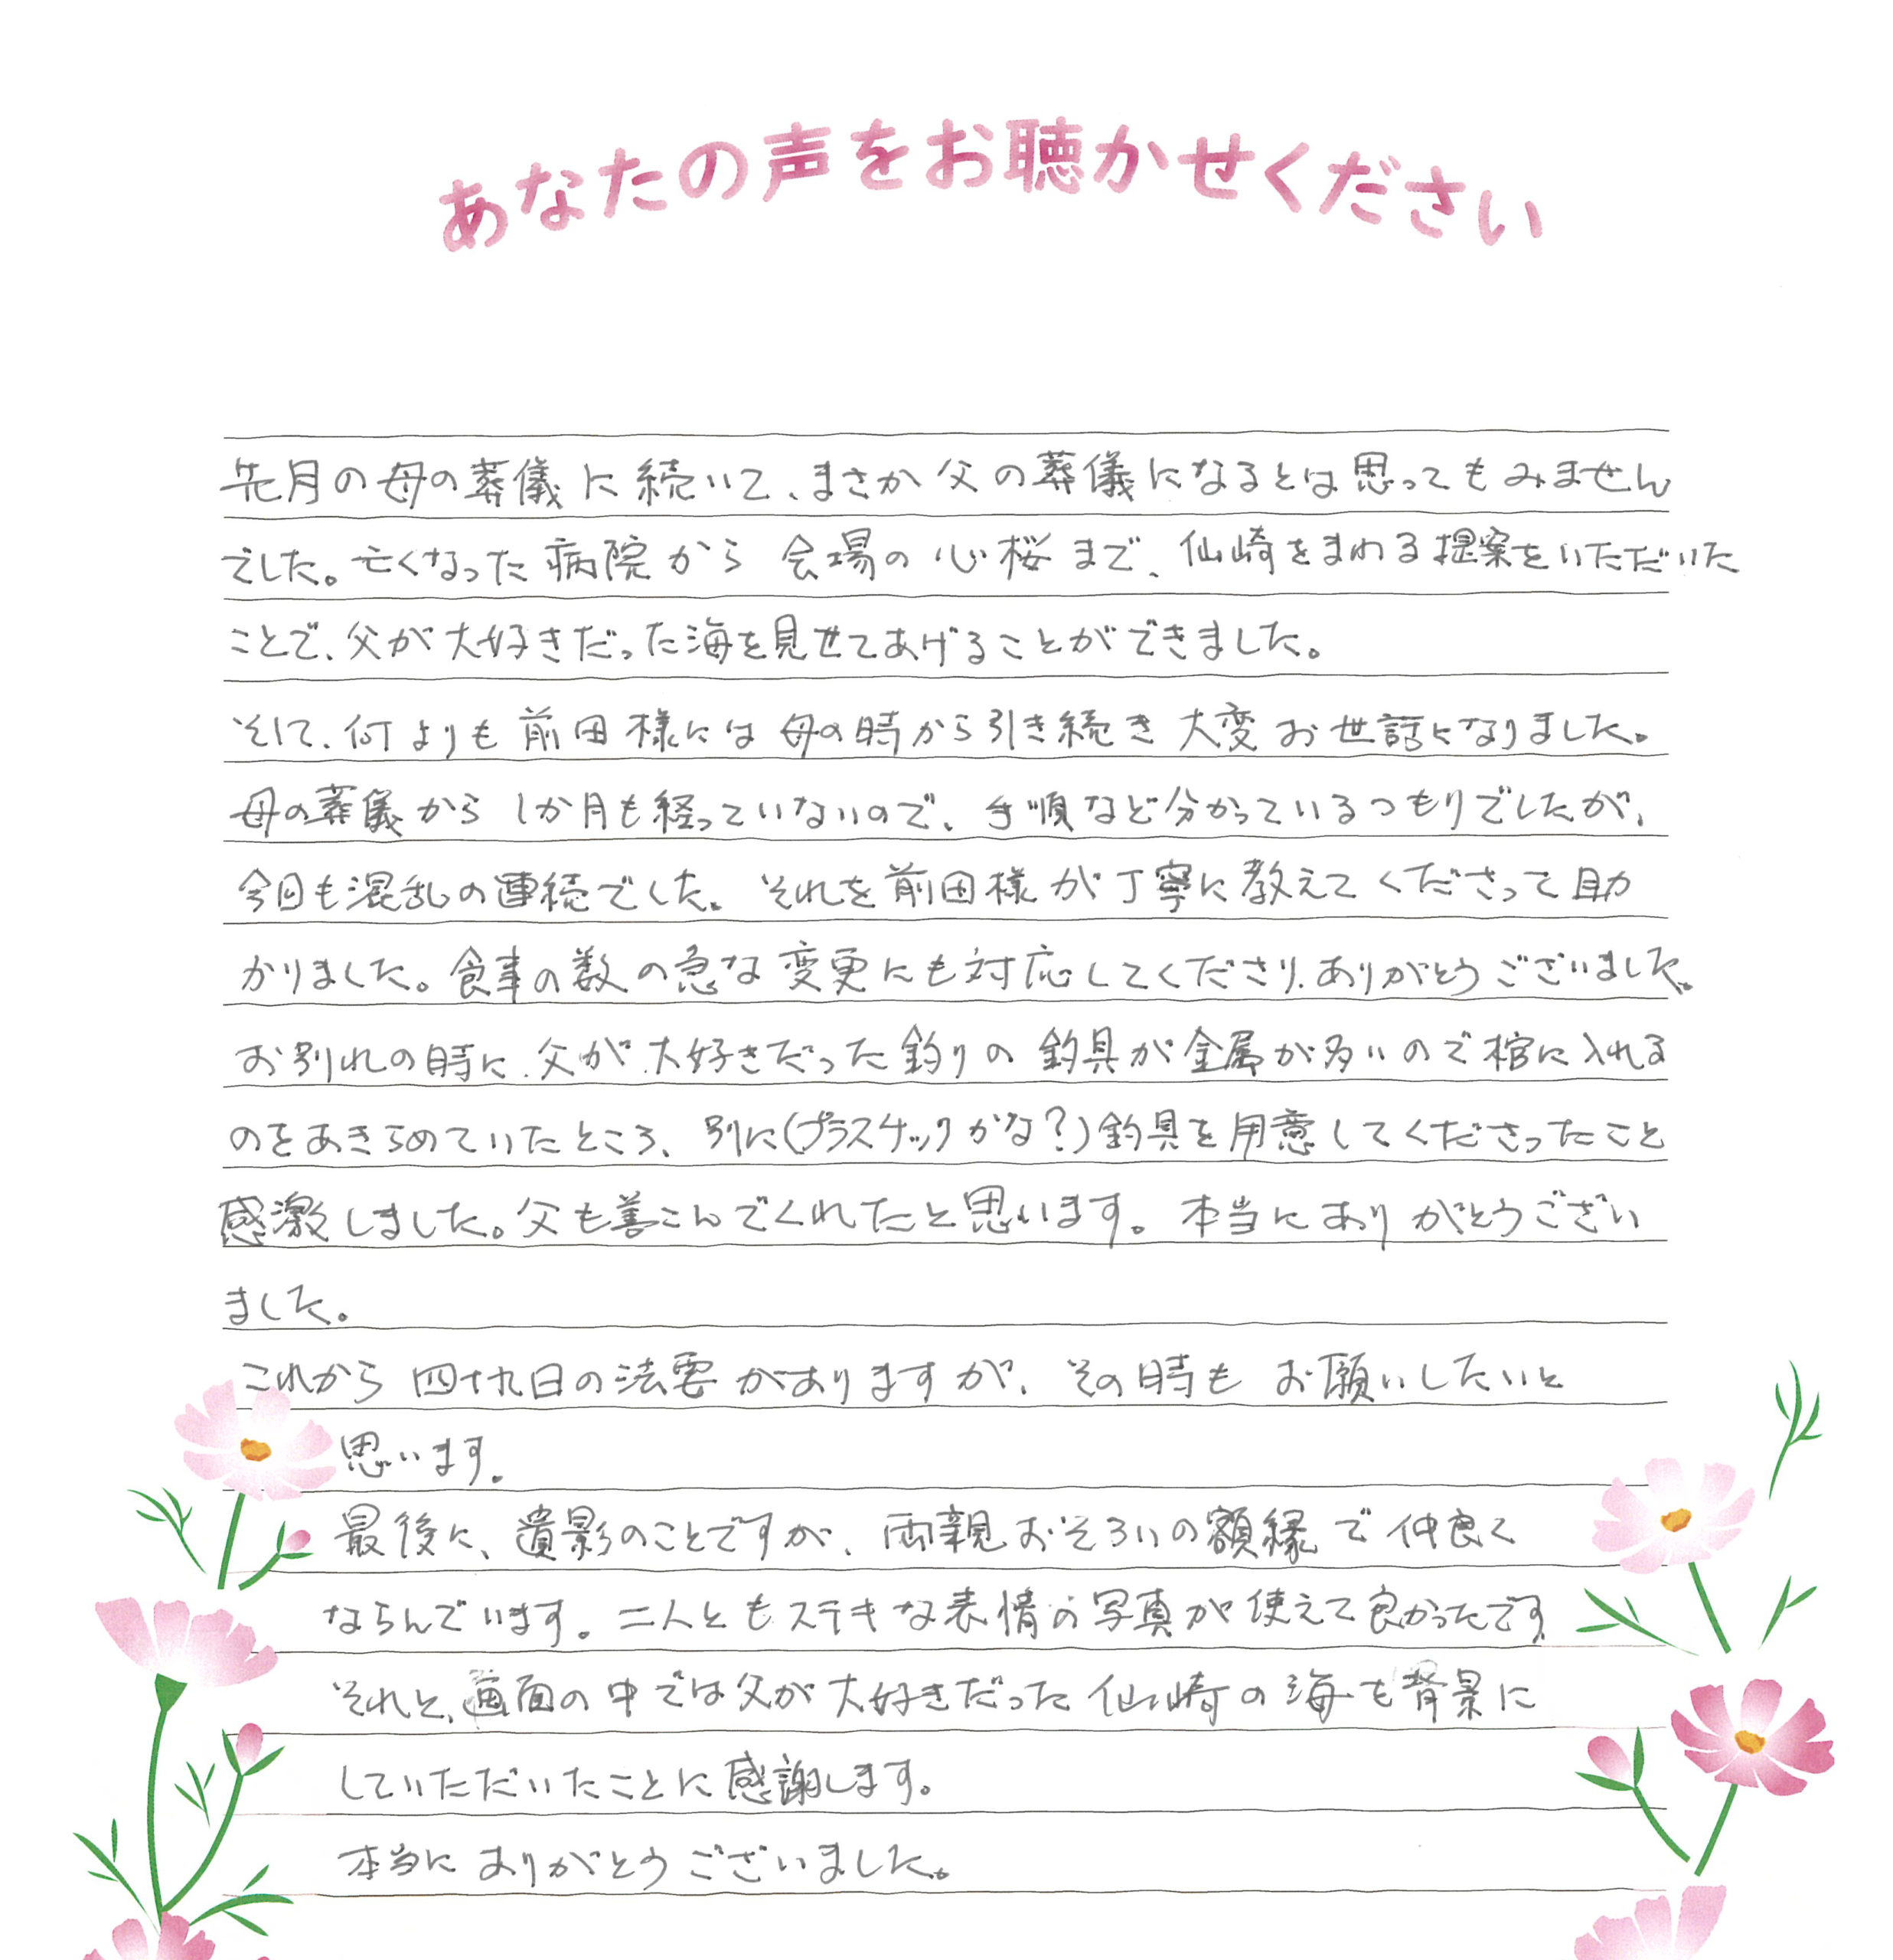 あなたの声をお聴かせください
先月の母の葬儀に続いて、まさか父の葬儀になるとは思ってもみません
でした。亡くなった病院から会場の心桜まで、仙崎をまわる提案をいただいた
ことで、父が大好きだった海を見せてあげることができました。
そして、何よりも前田様には母の時から引き続き大変お世話になりました。
母の葬儀から1か月も経っていないので、手順など分かっているつもりでしたが、
今回も混乱の連続でした。それを前田様が丁寧に教えてくださって助
かりました。食事の数の急な変更にも対応してくださり、ありがとうございました。
お別れの時に、父が大好きだった釣りの釣具が金属が多いので棺に入れる
のをあきらめていたところ、別に(プラスチックかな?)釣具を用意してくださったこと
感激しました。父も喜こんでくれたと思います。本当にありがとうござい
ました。
これから四十九日の法要がありますが、その時もお願いしたいと
思います。
最後に、遺影のことですが、両親おそろいの額縁で仲良く
ならんでいます。二人ともステキな表情の写真が使えて良かったです。
それと、画面の中では父が大好きだった仙崎の海も背景に
していただいたことに感謝します。
本当にありがとうございました。